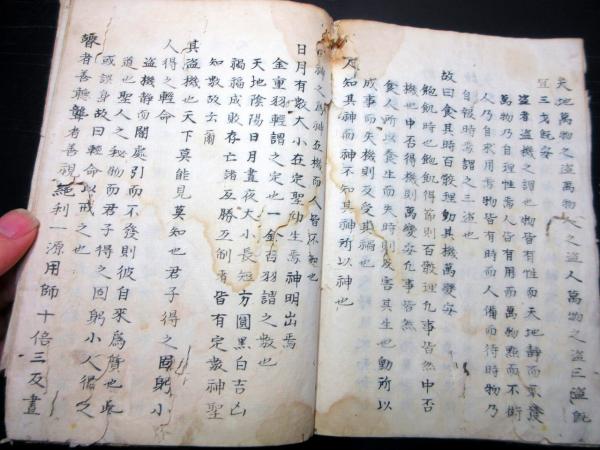 天地萬物之盜萬物人之盜人萬物之盜三盜既
宜三才既安
盜者盜機之謂也物皆有性而天地靜而不發
萬物乃自理性焉人皆有用而萬物黙而不衒
人乃自來用焉物皆有時而人備而待時物乃
自報時焉謂之三盜也
故曰食其時百骸理動其機萬變安
飽飢時也飽飢得節則百骸理凡事皆然中否
機也中否得機則萬變安凡事皆然
食人所以食生而失時則反害其生也動所以
成事而失機則反受其禍也
人知其神而神不知其神所以神也
神之爲神在機而人皆不知也
日月有數大小在定聖功生焉神明出焉
金重羽輕謂之定也一金百羽謂之數也
天地陰陽日月晝夜大小長短方圓黑白吉凶
禍福成敗存亡諸互勝互制者皆有定數神聖
知數故云爾
其盜機也天下莫能見莫知也君子得之固躬小
人得之輕命
盜機靜而闇處引而不發則彼自來爲質也是
道也聖人之秘物而君子得之固躬小人得之
或誤身故曰輕命以戒之也
瞽者善聽聾者善視絕利一源用師十倍三反晝